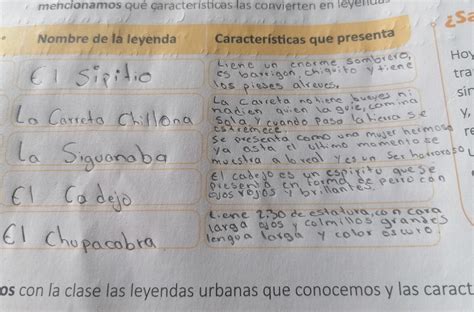 mencionamos qué características las convierten en leyendas
¿S
Nombre de la leyenda
Características que presenta
El Sipitio
Liene un enorme sombrero,
es barrigon, chiquito y tiene
los pieses alreves.
La Carreta Chillona
La Carreta no tiene bueyes ni
nadien quien la guie, camina
Sola y cuando pasa la tierra se
estremece.
La Siguanaba
Se presenta como una mujer hermosa
ya asta el ultimo momento se
muestra a lo real y es un Ser horroroso
El Cadejo
El cadejo es un espiritu que se
presenta en forma de perro con
ojos rojos y brillantes.
El Chupacabra
tiene 2.30 de estatura, con cara
larga ojos y colmillos grandes
lengua larga y color oscuro.
Hoy
tra
sin
y,
re
os con la clase las leyendas urbanas que conocemos y las caract